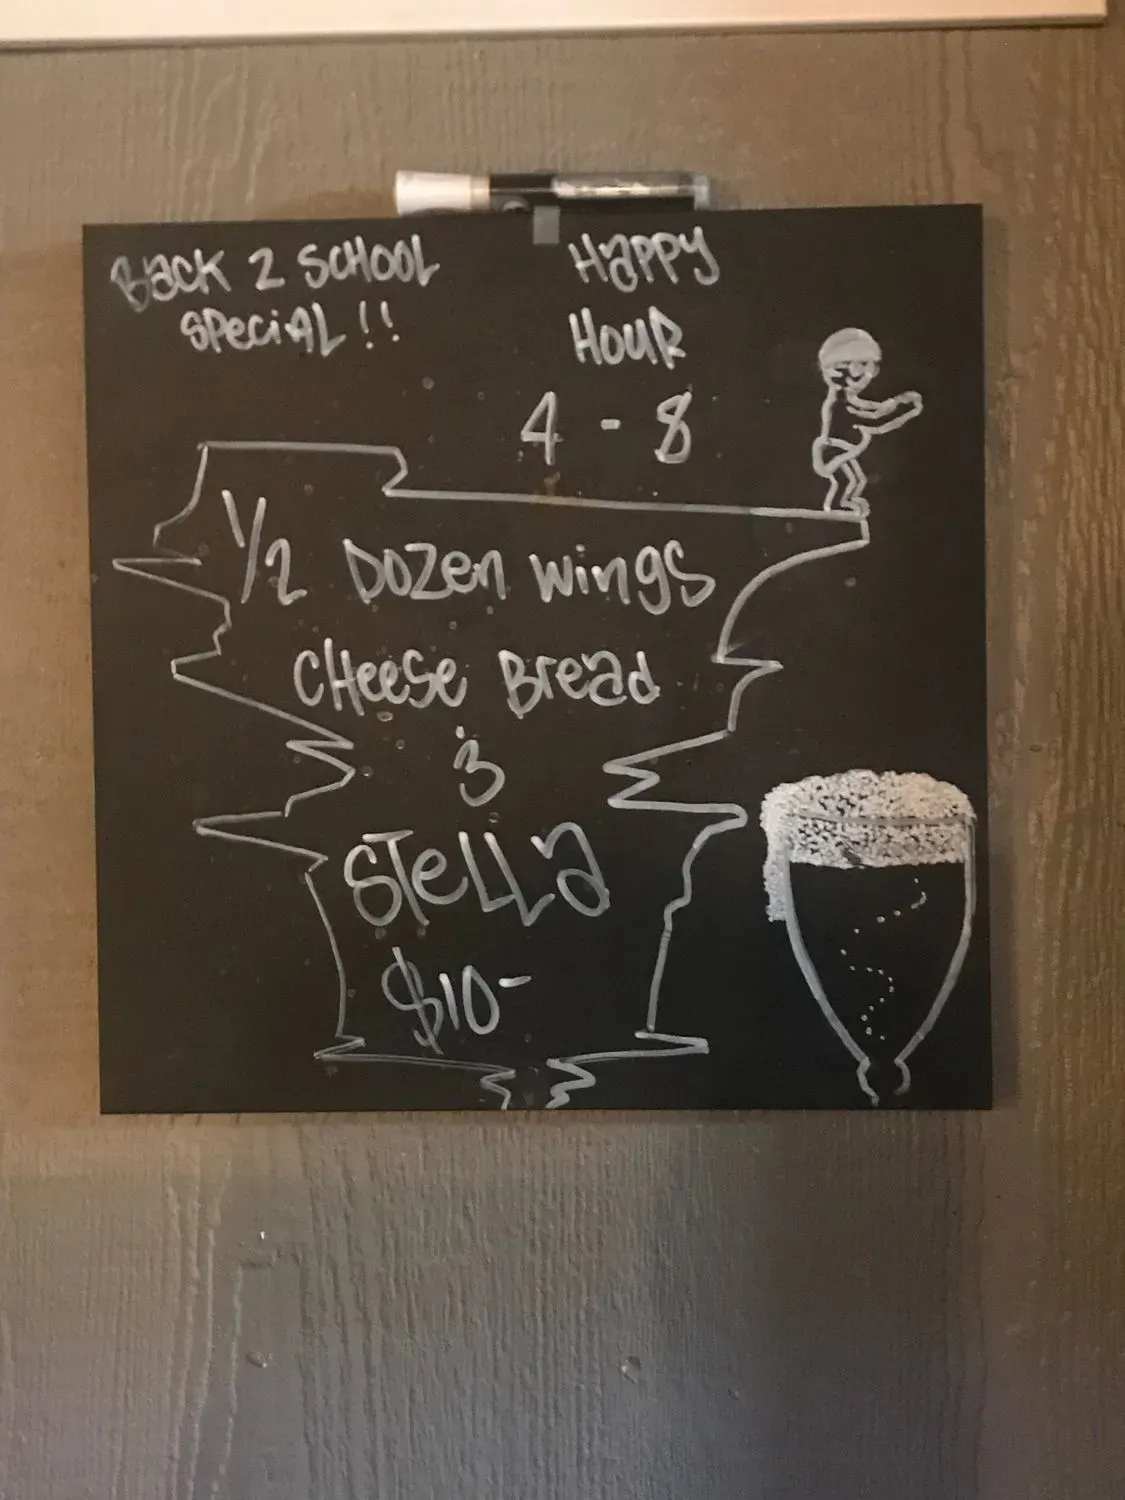 Back 2 School
Special!!
Happy
Hour
4 - 8
1/2 Dozen Wings
Cheese Bread
&
Stella
$10-